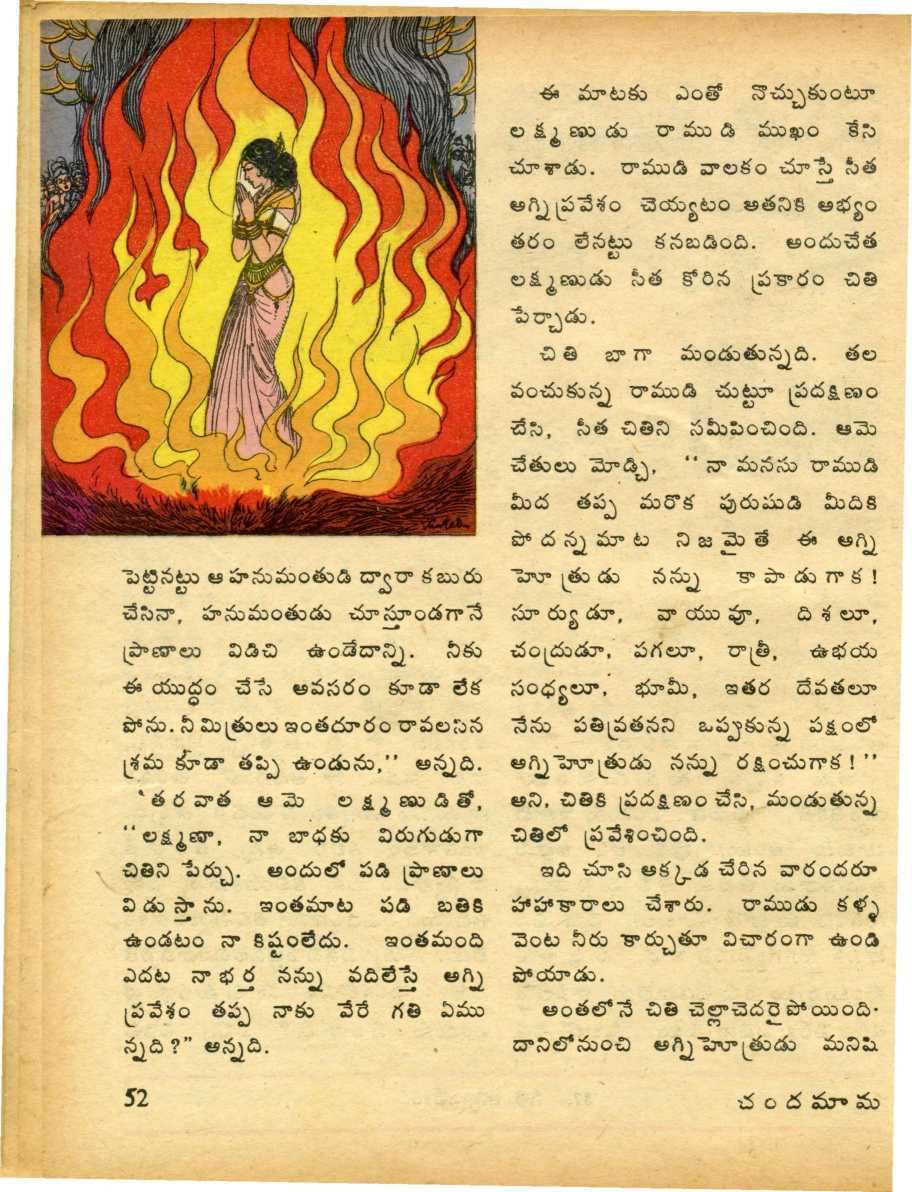 పెట్టినట్టు ఆ హనుమంతుడి ద్వారా కబురు
చేసినా, హనుమంతుడు చూస్తూండగానే
ప్రాణాలు విడిచి ఉండేదాన్ని. నీకు
ఈ యుద్ధం చేసే అవసరం కూడా లేక
పోను. నీ మిత్రులు ఇంతదూరం రావలసిన
శ్రమ కూడా తప్పి ఉండును,'' అన్నది.
'తరవాత ఆమె లక్ష్మణుడితో,
''లక్ష్మణా, నా బాధకు విరుగుడుగా
చితిని పేర్చు. అందులో పడి ప్రాణాలు
విడుస్తాను. ఇంతమాట పడి బతికి
ఉండటం నా కిష్టంలేదు. ఇంతమంది
ఎదట నాభర్త నన్ను వదిలేస్తే అగ్ని
ప్రవేశం తప్ప నాకు వేరే గతి ఏము
న్నది?" అన్నది.
ఈ మాటకు ఎంతో నొచ్చుకుంటూ
లక్ష్మణుడు రాముడి ముఖం కేసి
చూశాడు. రాముడి వాలకం చూస్తే సీత
అగ్నిప్రవేశం చెయ్యటం అతనికి అభ్యం
తరం లేనట్టు కనబడింది. అందుచేత
లక్ష్మణుడు సీత కోరిన ప్రకారం చితి
పేర్చాడు.
చితి బాగా మండుతున్నది. తల
వంచుకున్న రాముడి చుట్టూ ప్రదక్షిణం
చేసి, సీత చితిని సమీపించింది. ఆమె
చేతులు మోడ్చి, ''నా మనసు రాముడి
మీద తప్ప మరొక పురుషుడి మీదికి
పోదన్నమాట నిజమైతే ఈ అగ్ని
హోత్రుడు నన్ను కాపాడుగాక!
సూర్యుడూ, వాయువూ, దిశలూ,
చంద్రుడూ, పగలూ, రాత్రీ, ఉభయ
సంధ్యలూ, భూమీ, ఇతర దేవతలూ
నేను పతివ్రతనని ఒప్పుకున్న పక్షంలో
అగ్నిహోత్రుడు నన్ను రక్షించుగాక!''
అని, చితికి ప్రదక్షిణం చేసి, మండుతున్న
చితిలో ప్రవేశించింది.
ఇది చూసి అక్కడ చేరిన వారందరూ
హాహాకారాలు చేశారు. రాముడు కళ్ళ
వెంట నీరు కార్చుతూ విచారంగా ఉండి
పోయాడు.
అంతలోనే చితి చెల్లాచెదరై పోయింది.
దానిలోనుంచి అగ్నిహోత్రుడు మనిషి
52
చందమామ